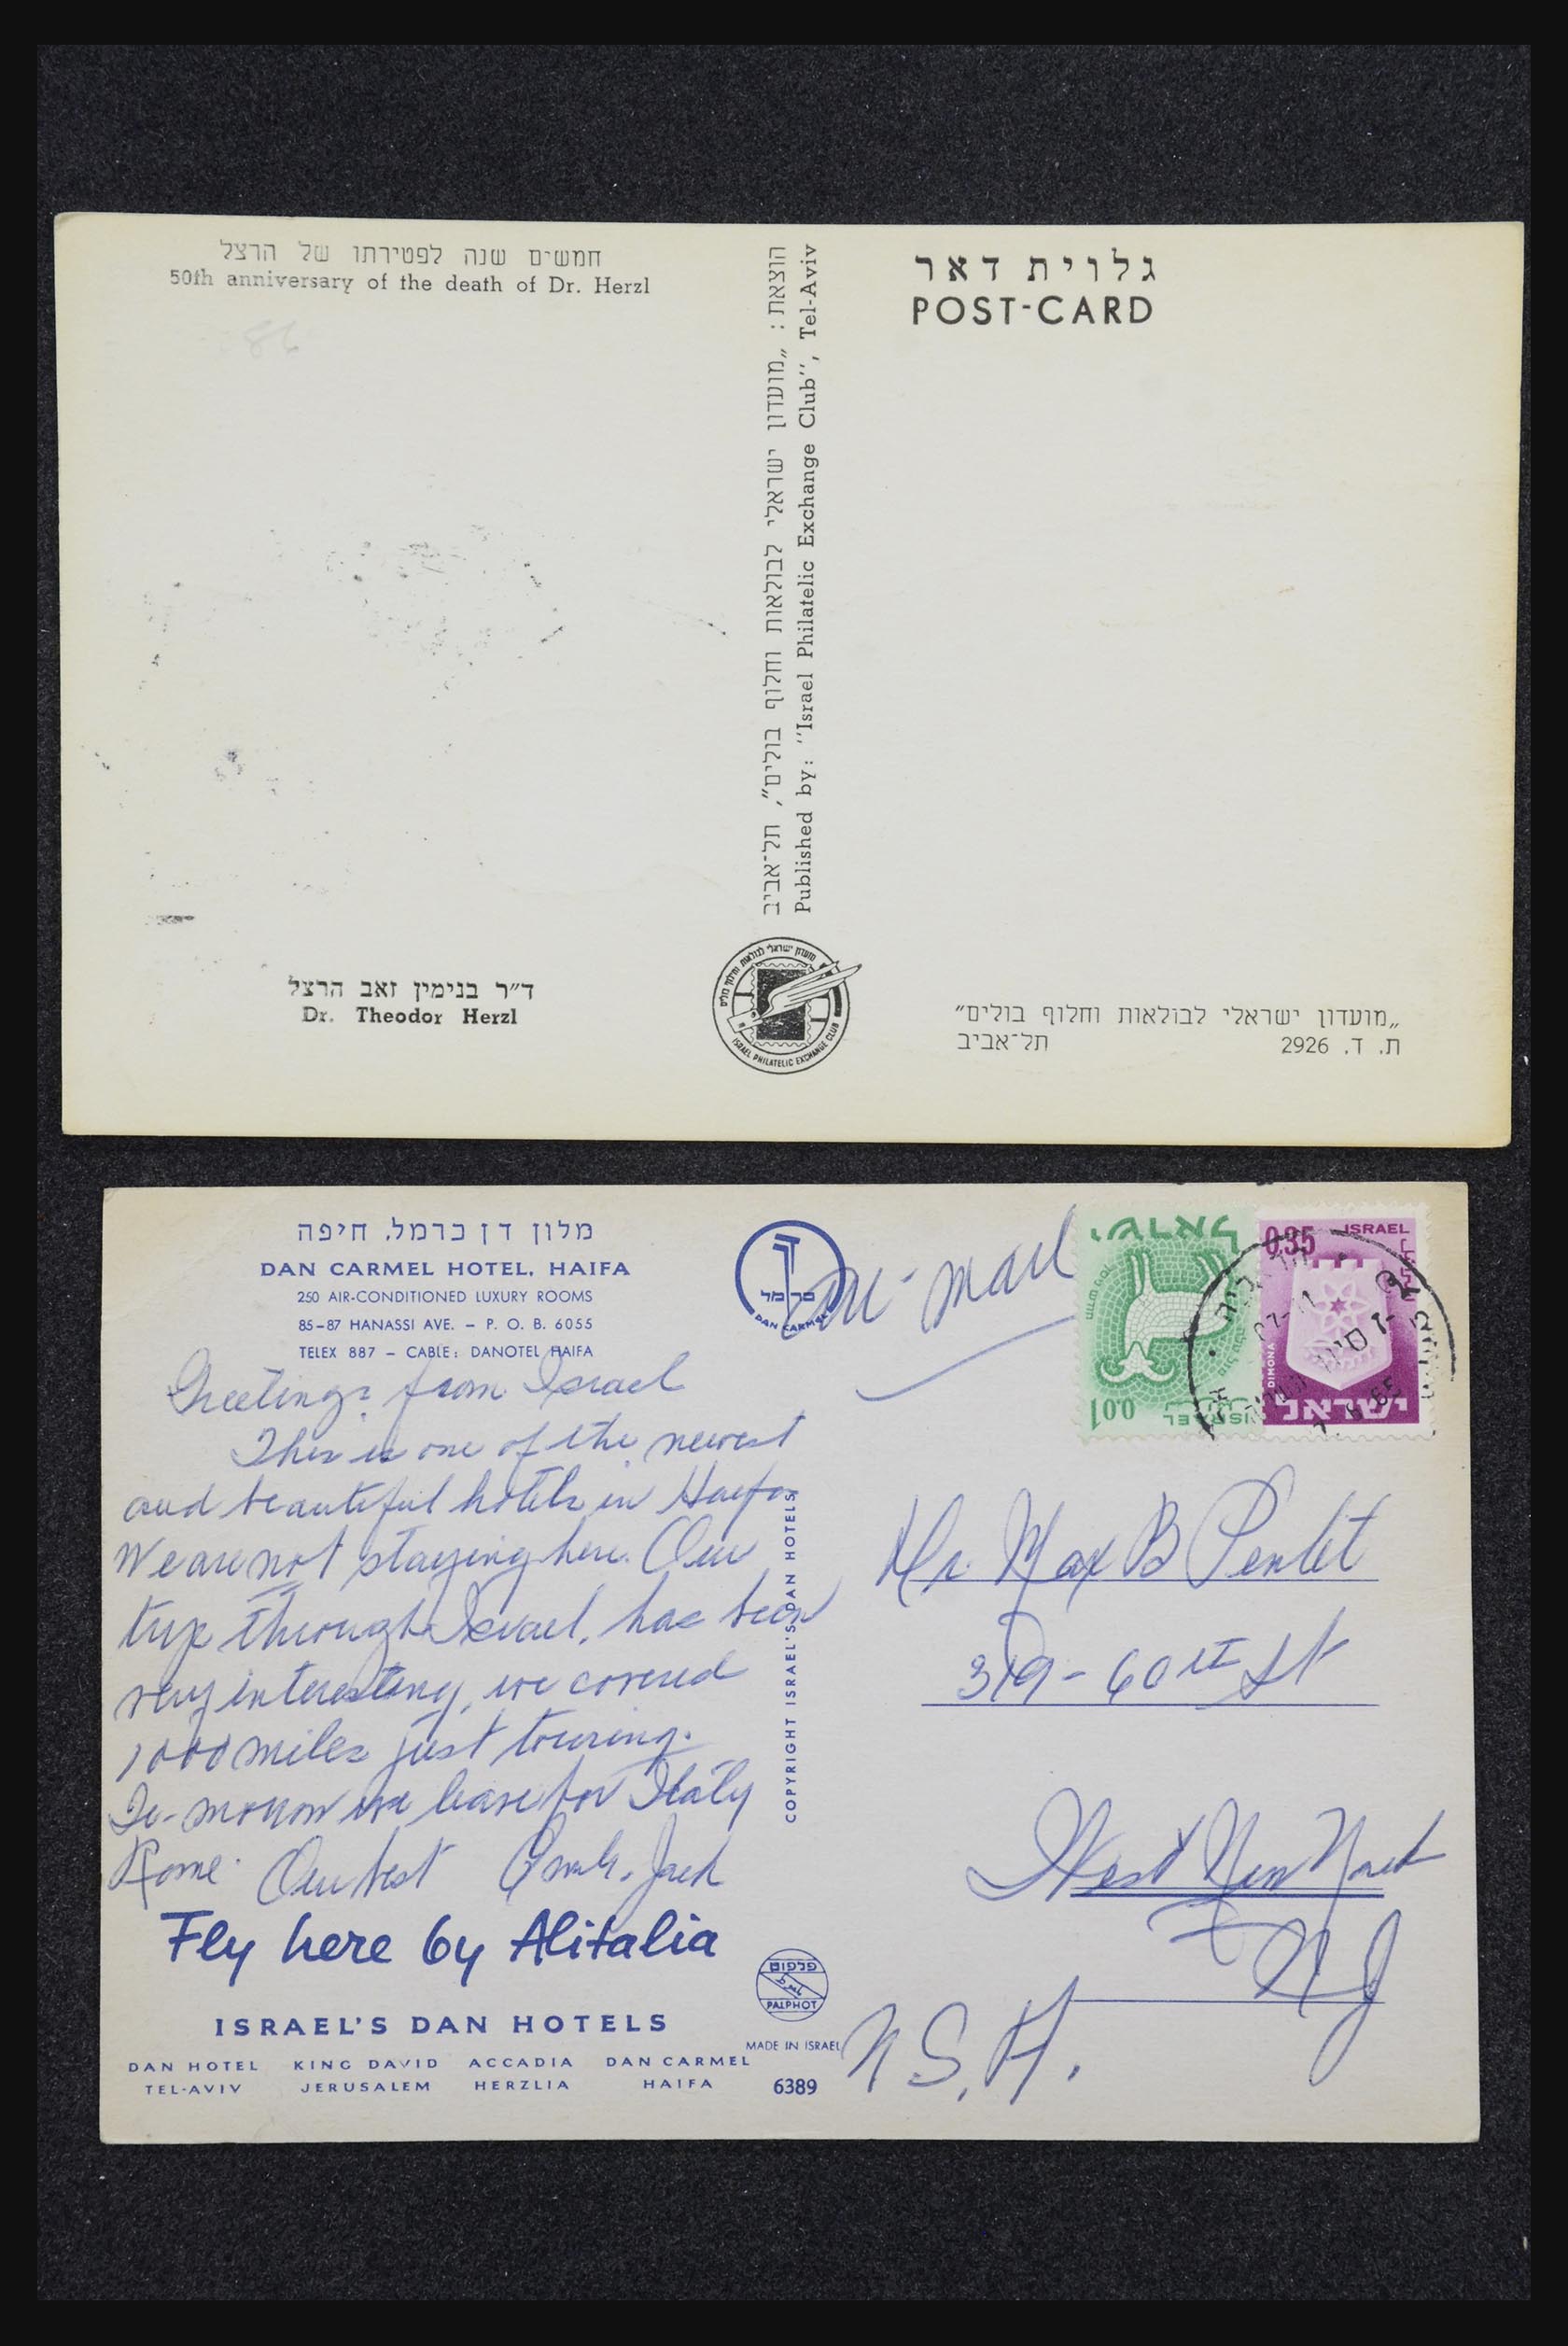 חמשים שנה לפטירתו של הרצל
50th anniversary of the death of Dr. Herzl
הוצאת: „מועדון ישראלי לבולאות וחלוף בולים”, תל־אביב
Published by: "Israel Philatelic Exchange Club", Tel-Aviv
גלוית דאר
POST-CARD
ד״ר בנימין זאב הרצל
Dr. Theodor Herzl
מועדון ישראלי לבולאות וחלוף בולים
ISRAEL PHILATELIC EXCHANGE CLUB
„מועדון ישראלי לבולאות וחלוף בולים”
ת. ד. 2926 תל־אביב
מלון דן כרמל. חיפה
DAN CARMEL HOTEL, HAIFA
250 AIR-CONDITIONED LUXURY ROOMS
85-87 HANASSI AVE. - P. O. B. 6055
TELEX 887 - CABLE: DANOTEL HAIFA
כרמל
DAN CARMEL
Air-mail
ישראל
0.01
ISRAEL
0.35
ISRAEL
DIMONA
ישראל
Greetings from Israel
This is one of the newest
and beautiful hotels in Haifa
We are not staying here. Our
trip through Israel, has been
very interesting, we covered
1000 miles just touring.
To-morrow we leave for Italy
Rome. Our best Jack
COPYRIGHT ISRAEL'S DAN HOTELS
Mr. Max B
319-60th St
West New York
NJ
Fly here by Alitalia
ISRAEL'S DAN HOTELS
DAN HOTEL KING DAVID ACCADIA DAN CARMEL
TEL-AVIV JERUSALEM HERZLIA HAIFA
פלפוט
PALPHOT
MADE IN ISRAEL
6389